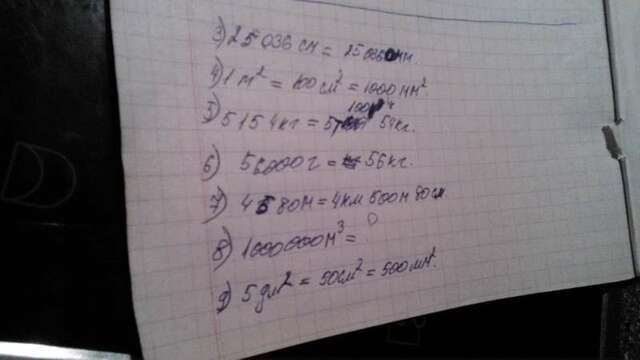 3) 25036 см = 250360 мм.
4) 1 м² = 100 см² = 1000 мм².
5) 5154 кг = 5 54 кг.
6) 56000 г = 56 кг.
7) 4580 м = 4 км 500 м 80 см.
8) 1000000 м³ = ?
9) 5 дм² = 50 см² = 500 мм².